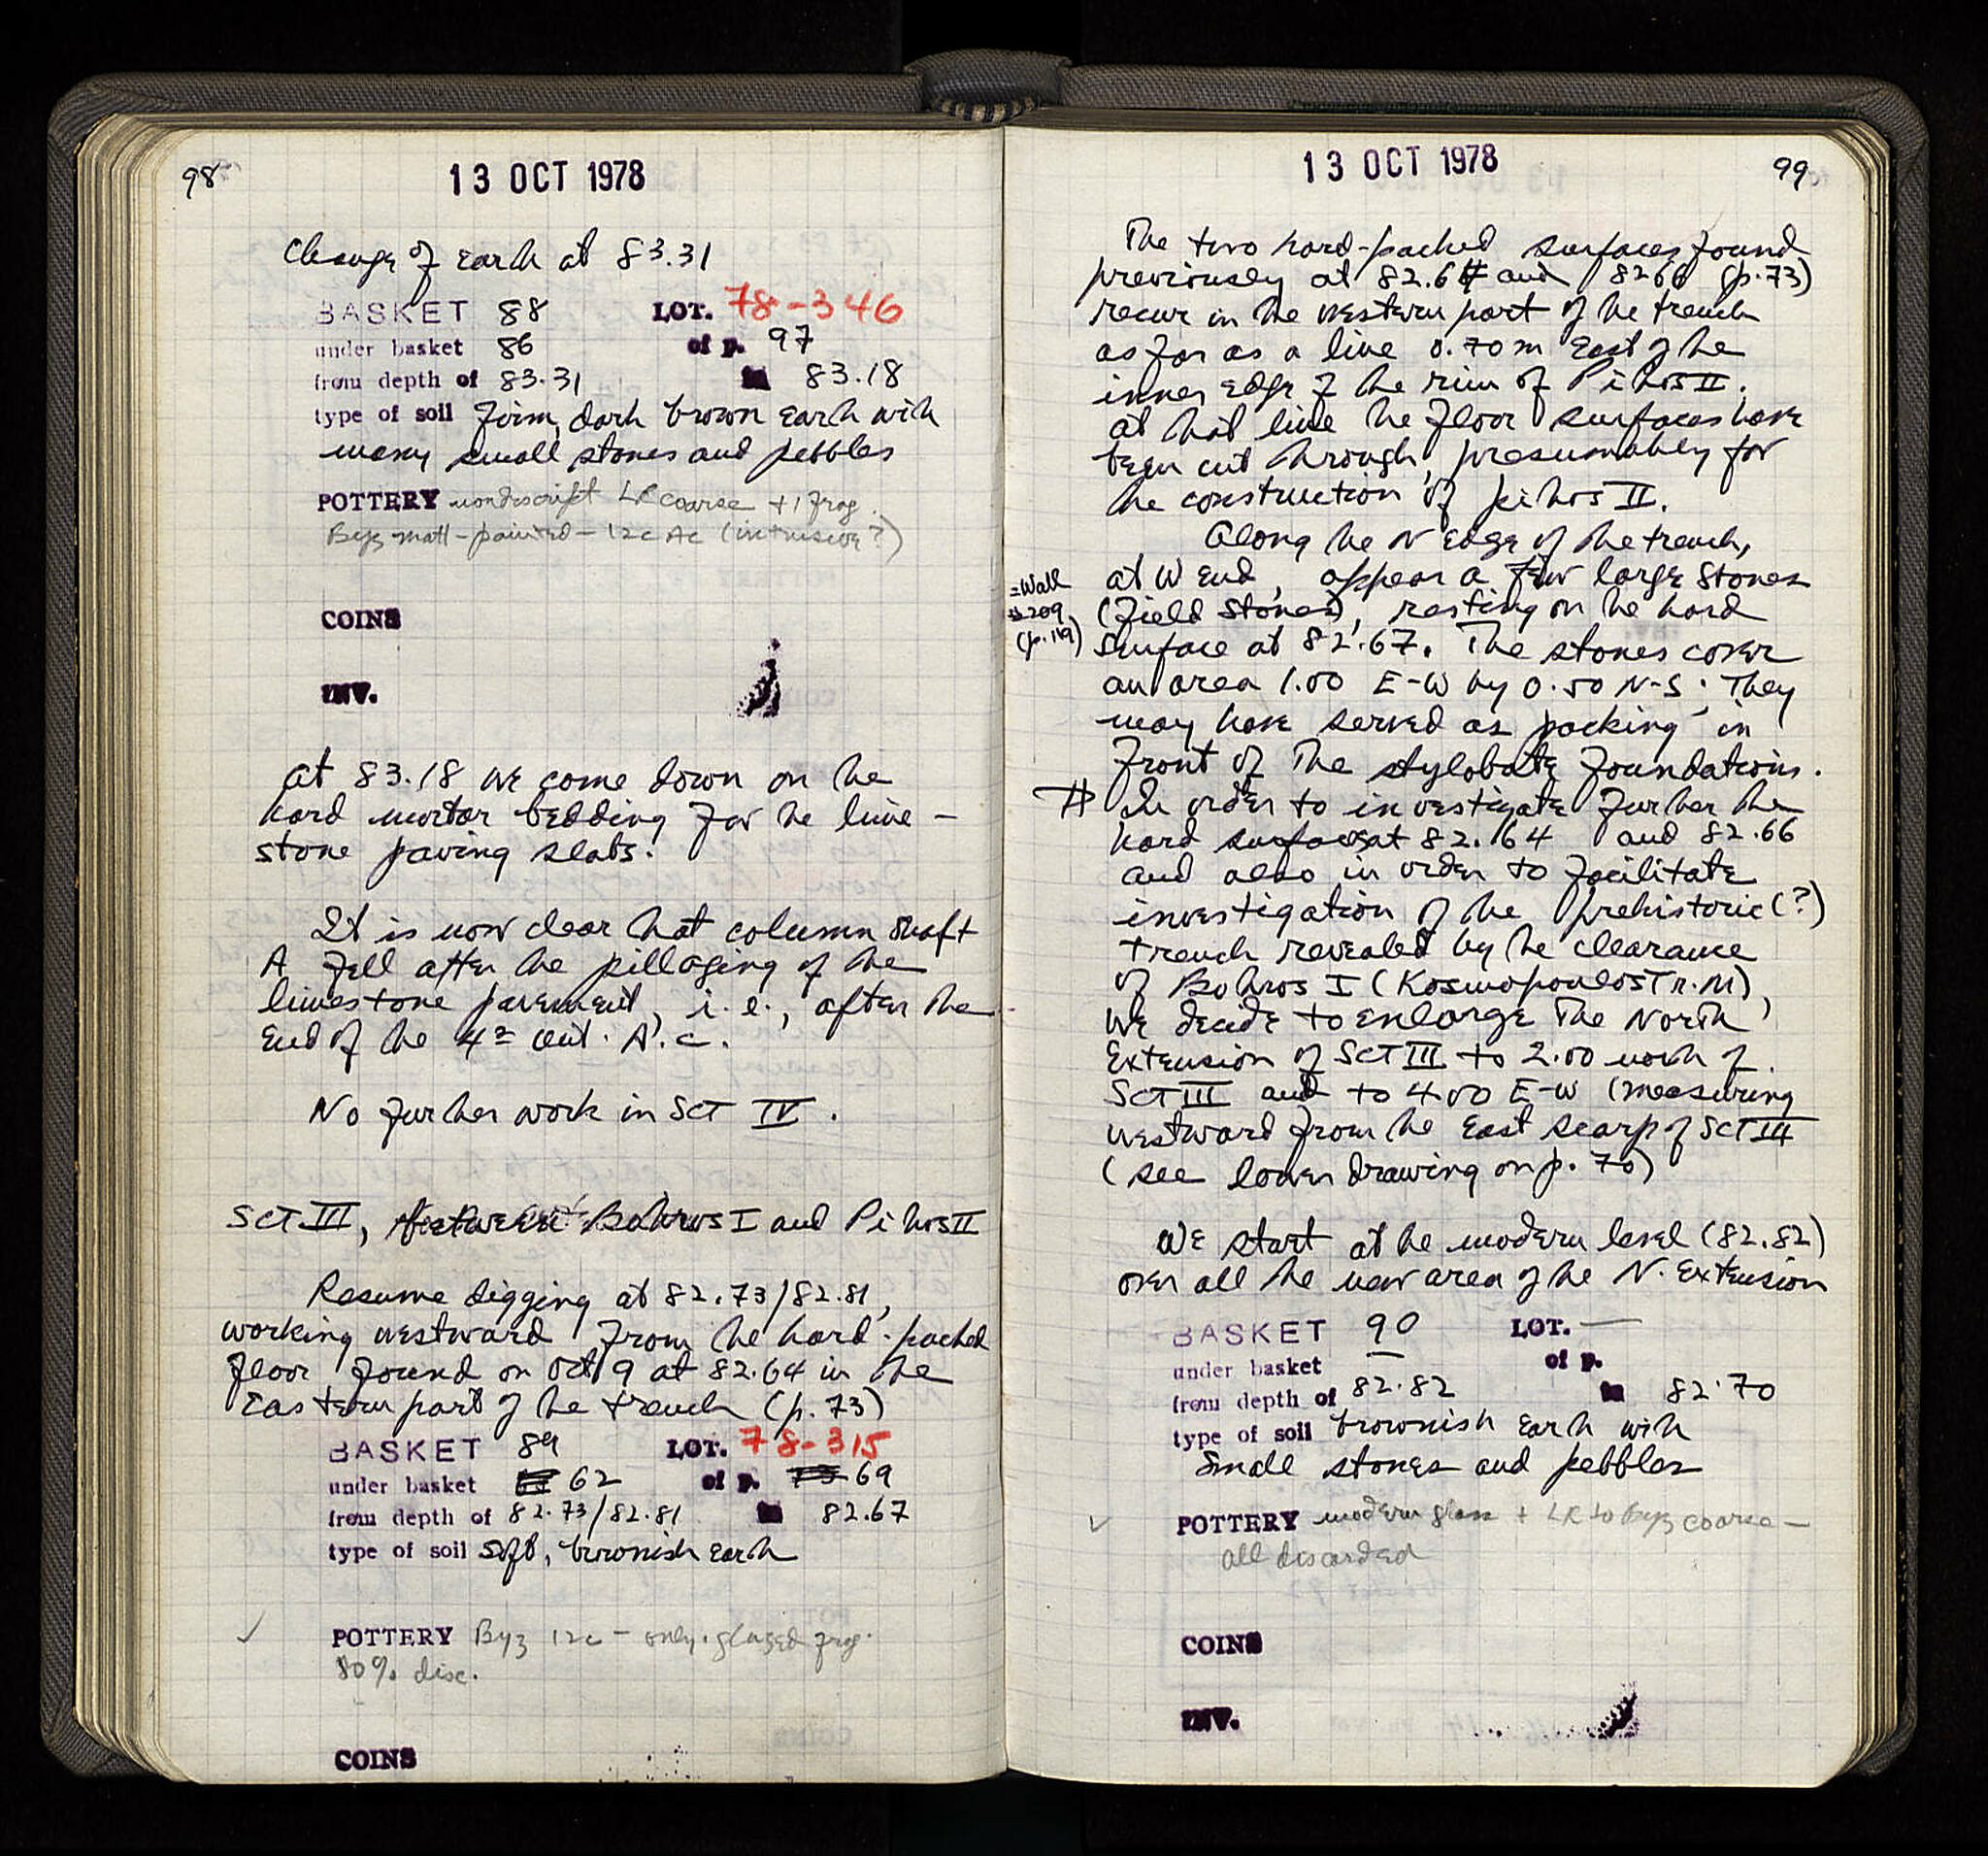 98
13 OCT 1978
Change of Earth at 83.31
BASKET 88 LOT. 78-346
under basket 86 of p. 97
from depth of 83.31 to 83.18
type of soil firm, dark brown Earth with
many small stones and pebbles
POTTERY nondescript LR coarse + 1 frag.
Byz matt-painted - 12c AC (intrusive?)
COINS
INV.
At 83.18 we come down on the
hard mortar bedding for the lime-
stone paving slabs.
It is now clear that column shaft
A fell after the pillaging of the
limestone pavement, i.e., after the
End of the 4th cent. A.C.
No further work in SCT IV.
SCT III, between Bothros I and Pithos II
Resume digging at 82.73/82.81,
working westward from the hard-packed
floor found on Oct 9 at 82.64 in the
Eastern part of the trench (p. 73)
BASKET 89 LOT. 78-315
under basket 62 of p. 69
from depth of 82.73/82.81 to 82.67
type of soil soft, brownish Earth
POTTERY Byz 12c - only glazed frag.
80% disc.
COINS
99
13 OCT 1978
The two hard-packed surfaces found
previously at 82.64 and 82.66 (p. 73)
recur in the western part of the trench
as far as a line 0.70m East of the
inner edge of the rim of Pithos II.
At that line the floor surfaces have
been cut through, presumably for
the construction of pithos II.
Along the N Edge of the trench,
at W End, appear a few large stones
(field stones), resting on the hard
surface at 82.67. The stones cover
an area 1.00 E-W by 0.50 N-S. They
may have served as packing in
front of the stylobate foundations.
=Wall
209
(p. 119)
In order to investigate further the
hard surfaces at 82.64 and 82.66
and also in order to facilitate
investigation of the prehistoric(?)
trench revealed by the clearance
of Bothros I (Kosmopoulos Tr. M),
we decide to enlarge the North
Extension of SCT III to 2.00 north of
SCT III and to 4.00 E-W (measuring
westward from the East scarp of SCT III
(see lower drawing on p. 70)
We start at the modern level (82.82)
over all the new area of the N. Extension
BASKET 90 LOT. —
under basket — of p.
from depth of 82.82 to 82.70
type of soil brownish Earth with
small stones and pebbles
POTTERY modern glass + LR to Byz coarse -
all discarded
COINS
INV.